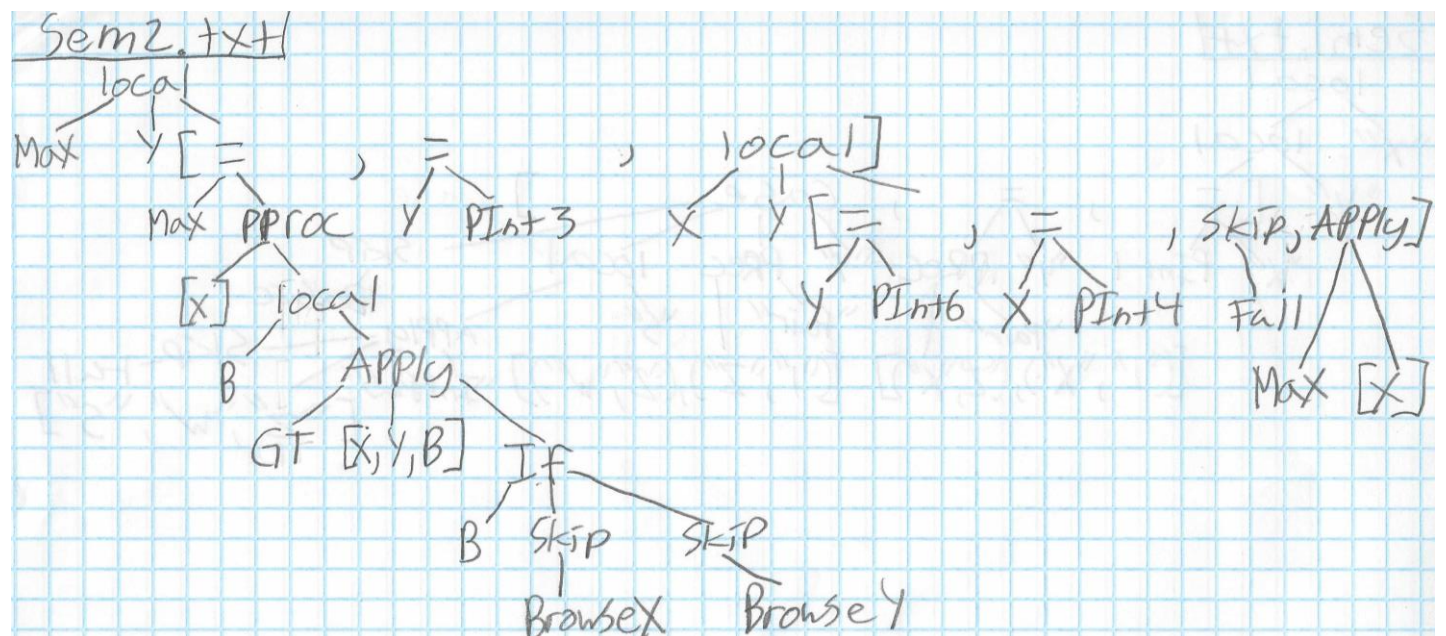 Sem2.txt
local
Max Y [ = , = , local ]
Max pproc Y PInt3 X Y [ = , = , Skip, Apply]
[X] local Y PInt6 X PInt4 Fail
B Apply Max [X]
GT [X,Y,B] If
B Skip Skip
BrowseX BrowseY